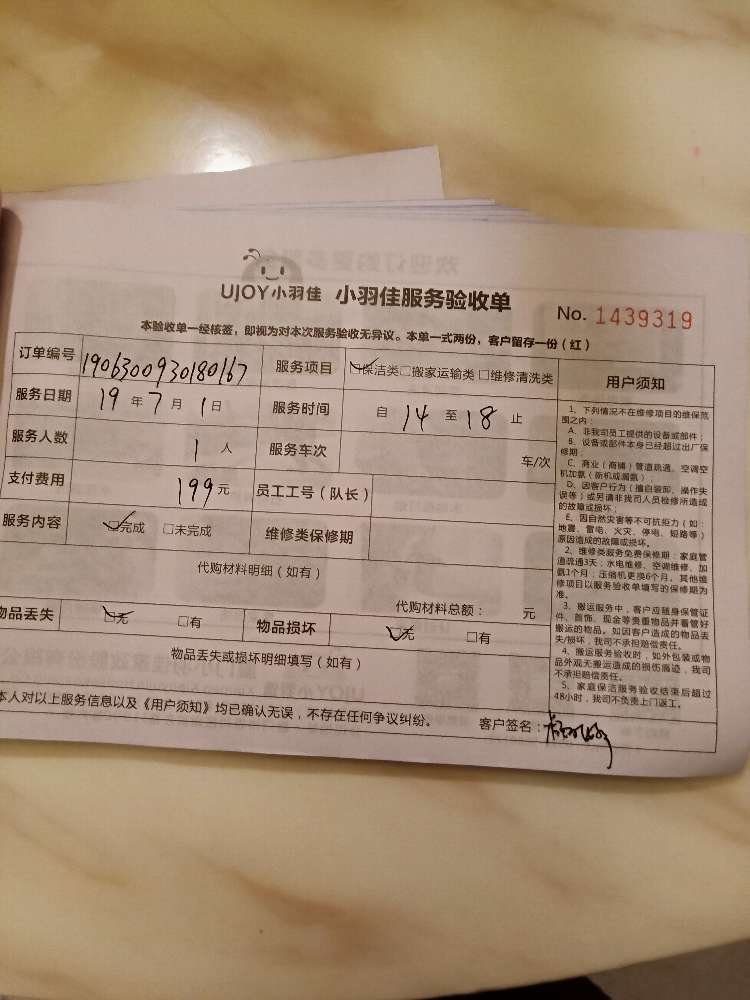 UJOY小羽佳 小羽佳服务验收单 No. 1439319
本验收单一经核签，即视为对本次服务验收无异议。本单一式两份，客户留存一份（红）
订单编号 1906300930180167 服务项目 ☑保洁类□搬家运输类□维修清洗类 用户须知
服务日期 19年7月1日 服务时间 自14至18止
服务人数 1人 服务车次 车/次
支付费用 199元 员工工号（队长）
服务内容 ☑完成 □未完成 维修类保修期
代购材料明细（如有）
代购材料总额： 元
物品丢失 ☑无 □有 物品损坏 ☑无 □有
物品丢失或损坏明细填写（如有）
本人对以上服务信息以及《用户须知》均已确认无误，不存在任何争议纠纷。 客户签名：
1、下列情况不在维修项目的维保范
围之内：
A、非我司员工提供的设备或部件；
B、设备或部件本身已经超过出厂保
修期；
C、商业（商铺）管道疏通，空调空
机加氨（新机或漏氨）
D、因客户行为（擅自装卸、操作失
误等）或另请非我司人员检修所造成
的故障或损坏；
E、因自然灾害等不可抗力（如：
地震、雷电、火灾、停电、短路等）
原因造成的故障或损坏。
2、维修类服务免费保修期：家庭管
道疏通3天；水电维修、空调维修、加
氨1个月；压缩机更换6个月。其他维
修项目以服务验收单填写的保修期为
准。
3、搬运服务中，客户应随身保管证
件、首饰、现金等贵重物品并看管好
搬运的物品。如因客户造成的物品丢
失/损坏，我司不承担赔偿责任。
4、搬运服务验收时，如外包装或物
品外观无搬运造成的损伤痕迹，我司
不承担赔偿责任。
5、家庭保洁服务验收结束后超过
48小时，我司不负责上门返工。